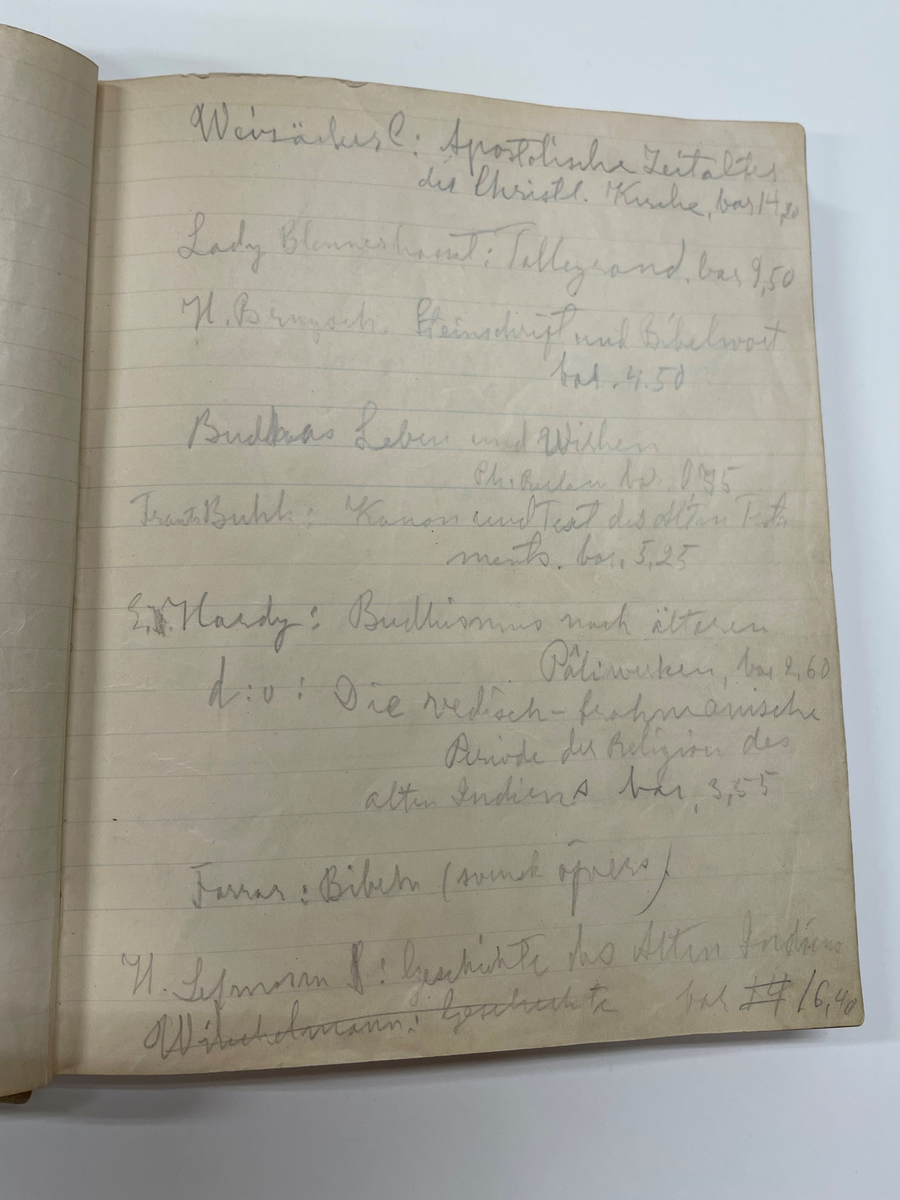 Weizsäcker C: Apostolische Zeitalter
der Christl. Kirche, bar 14,20
Lady Blennerhasset: Talleyrand. bar 9,50
H. Brugsch. Steinschrift und Bibelwort
bar. 4.50
Buddhas Leben und Wirken
bar. 0 75
Frants Buhl: Kanon und Text des Alten Testa
ments. bar. 5,25
E. Hardy: Budhismus nach älteren
Pâliwerken, bar 2,60
d:o: Die vedisch-brahmanische
Periode der Religion des
alten Indiens bar, 3,55
Farrar: Bibeln (svensk öfvers)
H. Lefmann S: Geschichte des Alten Indiens
Winckelmann: Geschichte bar 14 16,40